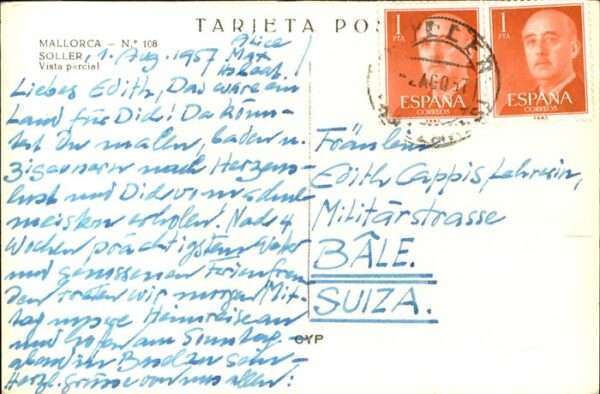 TARJETA POS
MALLORCA - N.º 108
SOLLER
Vista parcial
1. Aug. 1957
Alice
Max
Liebes Edith, Das wäre ein
Land für Dich! Da könn-
test Du malen, baden u.
nach Herzens-
lust und Dich vom Schul-
meistern erholen. Nach 4
Wochen prächtigstem Wetter
und genossenen Ferienfreu
den treten wir morgen Mit-
tag unsere Heimreise an
und hoffen am Sonntag-
abend in zu sein.
Herzl. Grüsse von uns allen!
1
PTA
ESPAÑA
CORREOS
1
PTA
ESPAÑA
CORREOS
SOLLER
2 AGO 57
Fräulein
Edith Cappis, Lehrerin,
Militärstrasse
BÂLE.
SUIZA.
CYP